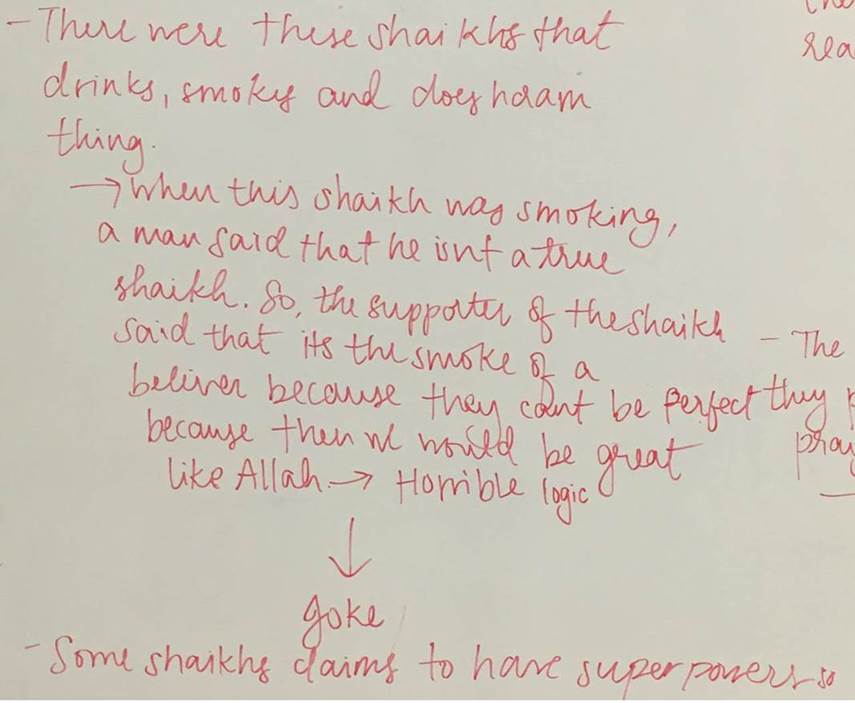 - There were these shaikhs that
drinks, smokes and does haram
thing.
→ When this shaikh was smoking,
a man said that he isnt a true
shaikh. So, the supporter of the shaikh
said that its the smoke of a
beliver because they cant be perfect
because then we would be great
like Allah → Horrible logic
↓
joke
- Some shaikhs claims to have superpowers so
- The
they
pray